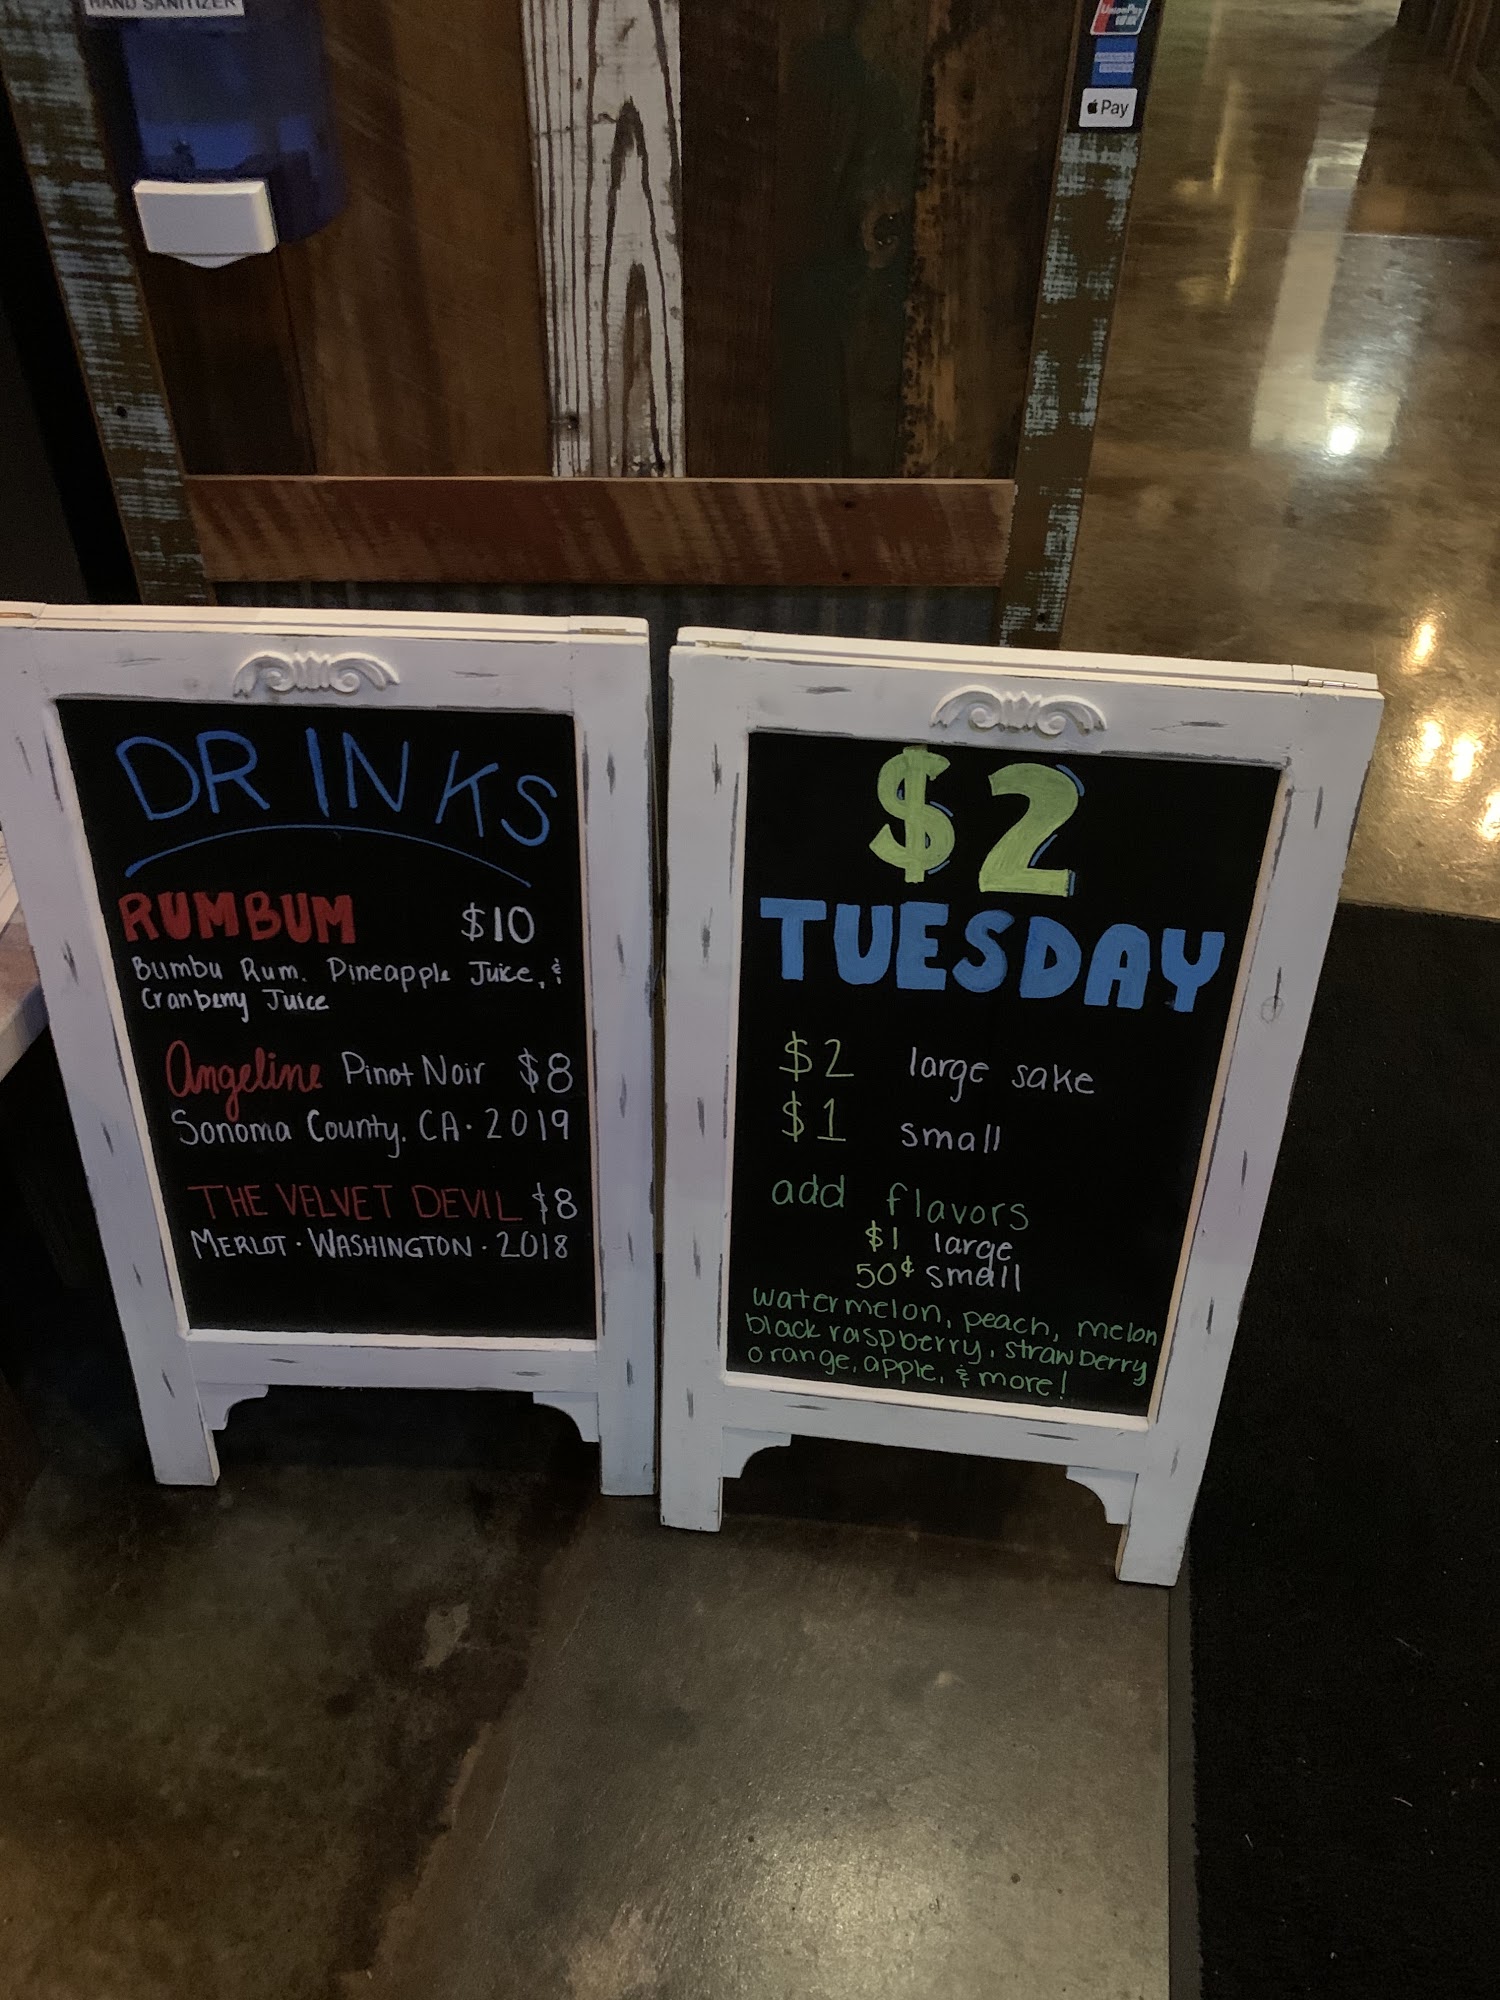 HAND SANITIZER
UnionPay
Pay
DRINKS
RUMBUM $10
Bumbu Rum. Pineapple Juice, &
Cranberry Juice
Angeline Pinot Noir $8
Sonoma County, CA · 2019
THE VELVET DEVIL $8
MERLOT · WASHINGTON · 2018
$2
TUESDAY
$2 large sake
$1 small
add flavors
$1 large
50¢ small
watermelon, peach, melon
black raspberry, strawberry
orange, apple, & more!